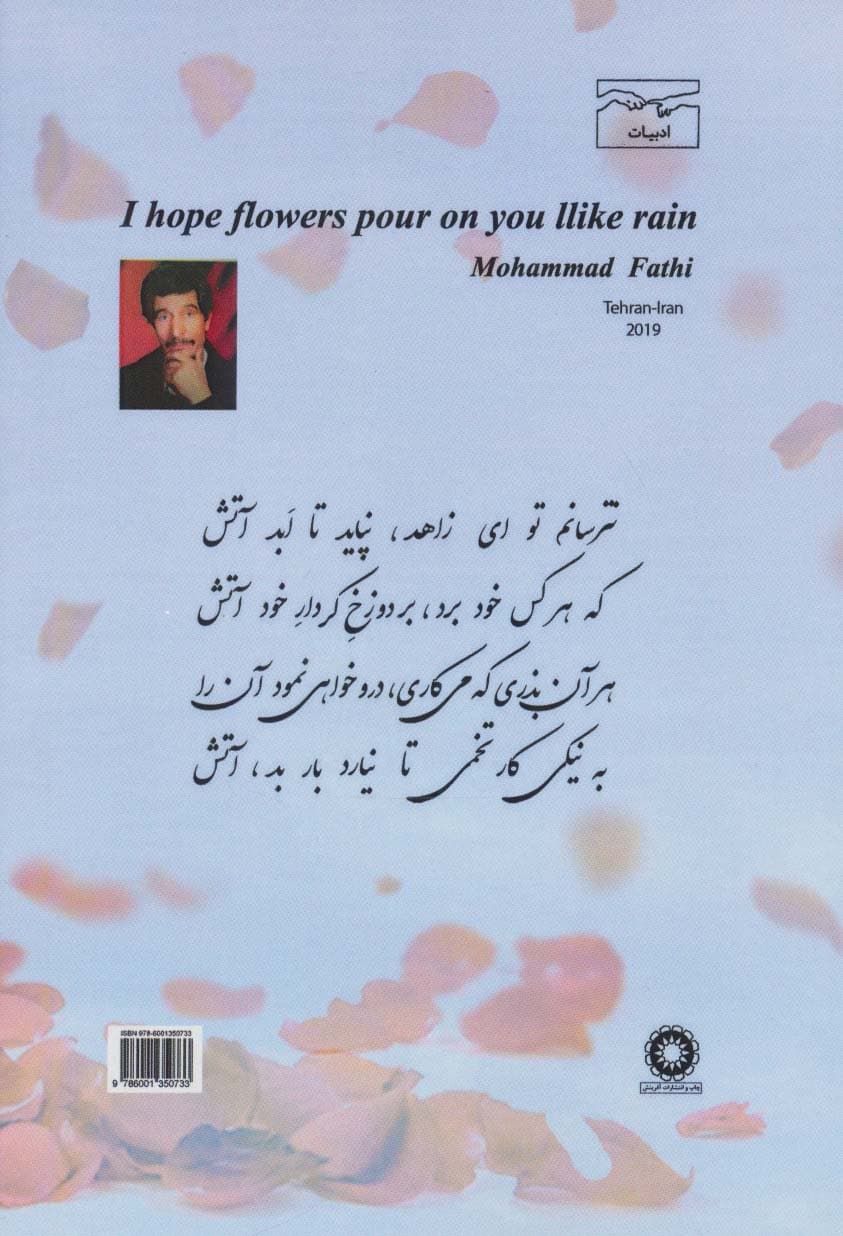 ادبیات
I hope flowers pour on you llike rain
Mohammad Fathi
Tehran-Iran
2019
نترسانم تو ای زاهد، نپاید تا اَبد آتش
که هر کس خود برد، بر دوزخِ کردارِ خود آتش
هر آن بذری که می‌کاری، درو خواهی نمود آن را
به نیکی کار تخمی تا نیارد بار بد، آتش
ISBN 978-6001350733
9 786001 350733
چاپ و انتشارات آفرینش